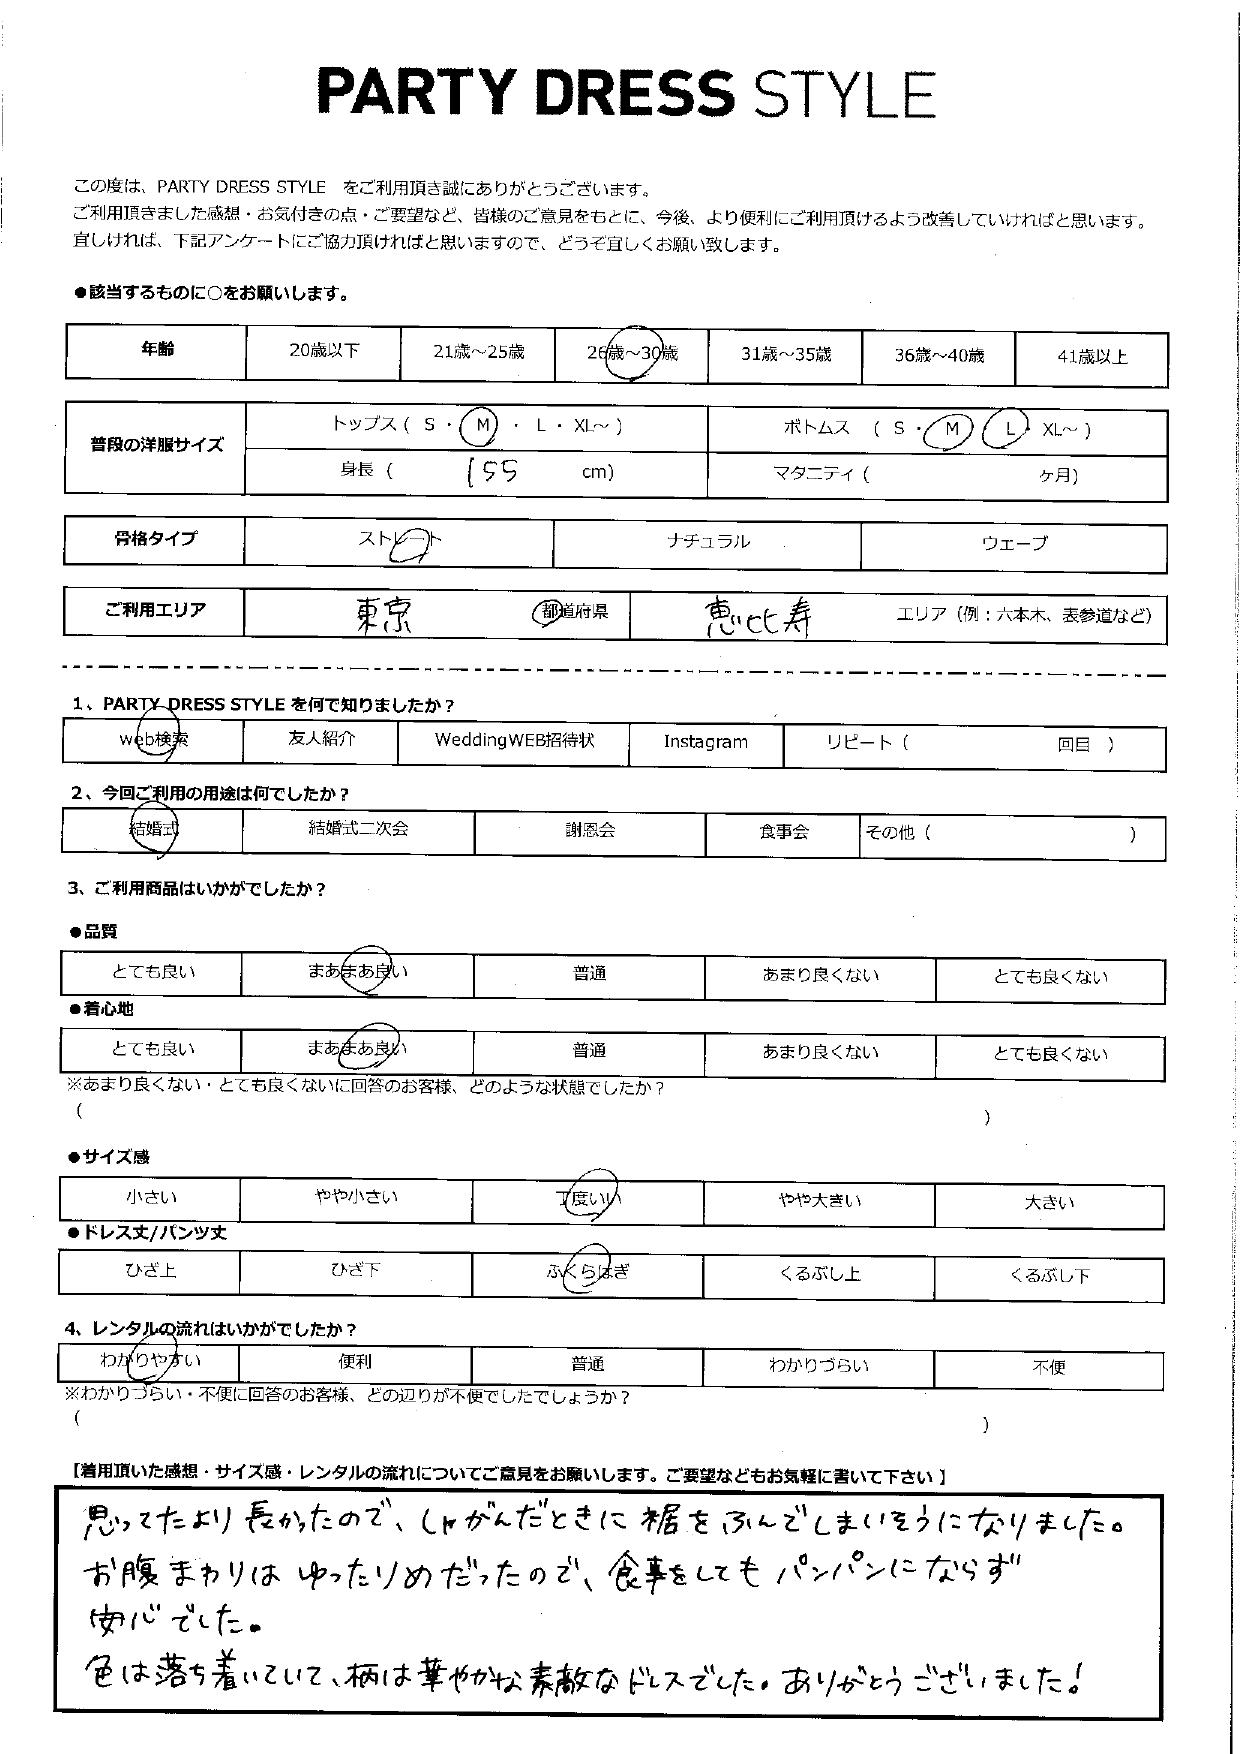 PARTY DRESS STYLE
この度は、PARTY DRESS STYLE をご利用頂き誠にありがとうございます。
ご利用頂きました感想・お気付きの点・ご要望など、皆様のご意見をもとに、今後、より便利にご利用頂けるよう改善していければと思います。
宜しければ、下記アンケートにご協力頂ければと思いますので、どうぞ宜しくお願い致します。
●該当するものに○をお願いします。
年齢 20歳以下 21歳～25歳 26歳～30歳 31歳～35歳 36歳～40歳 41歳以上
普段の洋服サイズ
トップス ( S ・ M ・ L ・ XL～ ) ボトムス ( S ・ M ・ L ・ XL～ )
身長 ( 155 cm) マタニティ ( ヶ月)
骨格タイプ ストレート ナチュラル ウェーブ
ご利用エリア 東京 都道府県 恵比寿 エリア（例：六本木、表参道など）
1、PARTY DRESS STYLE を何で知りましたか？
web検索 友人紹介 WeddingWEB招待状 Instagram リピート ( 回目 )
2、今回ご利用の用途は何でしたか？
結婚式 結婚式二次会 謝恩会 食事会 その他 ( )
3、ご利用商品はいかがでしたか？
●品質
とても良い まあまあ良い 普通 あまり良くない とても良くない
●着心地
とても良い まあまあ良い 普通 あまり良くない とても良くない
※あまり良くない・とても良くないに回答のお客様、どのような状態でしたか？
( )
●サイズ感
小さい やや小さい 丁度いい やや大きい 大きい
●ドレス丈/パンツ丈
ひざ上 ひざ下 ふくらはぎ くるぶし上 くるぶし下
4、レンタルの流れはいかがでしたか？
わかりやすい 便利 普通 わかりづらい 不便
※わかりづらい・不便に回答のお客様、どの辺りが不便でしたでしょうか？
( )
【着用頂いた感想・サイズ感・レンタルの流れについてご意見をお願いします。ご要望などもお気軽に書いて下さい】
思ってたより長かったので、しゃがんだときに裾をふんでしまいそうになりました。
お腹まわりはゆったりめだったので、食事をしてもパンパンにならず
安心でした。
色は落ち着いていて、柄は華やかな素敵なドレスでした。ありがとうございました！